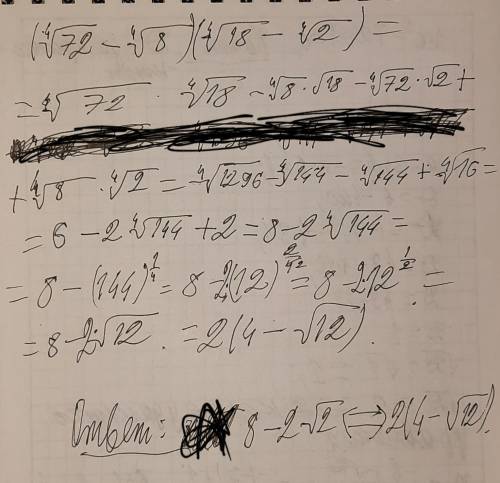 (⁴√72 - ⁴√8)(⁴√18 - ⁴√2) =
= ⁴√72 · ⁴√18 - ⁴√8 · √18 - ⁴√72 · √2 +
+ ⁴√8 · ⁴√2 = ⁴√1296 - ⁴√144 - ⁴√144 + ⁴√16 =
= 6 - 2 ⁴√144 + 2 = 8 - 2 ⁴√144 =
= 8 - (144)^(1/4) = 8 - 2·(12)^(2/4) = 8 - 2·12^(1/2) =
= 8 - 2·√12 . = 2(4 - √12).
Ответ: 8 - 2·√2 ⇔ 2(4 - √12).